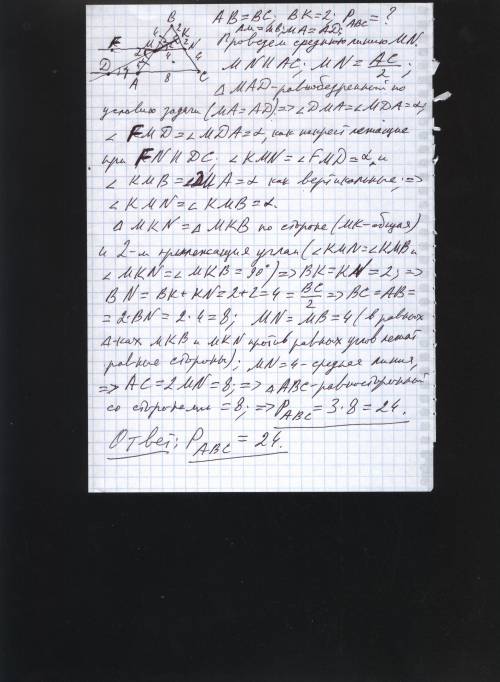 AB=BC; BK=2; P_ABC=?
AM=MB; MA=AD;
Проведем среднюю линию MN.
MN||AC; MN=AC/2;
ΔMAD-равнобедренный по
условию задачи (MA=AD)=>∠DMA=∠MDA=α;
∠FMD=∠MDA=α, как накрест лежащие
при FN||DC; ∠KMN=∠FMD=α, и
∠KMB=∠DMA=α как вертикальные; =>
∠KMN=∠KMB=α.
ΔMKN=ΔMKB по стороне (MK-общая)
и 2-м прилежащим углам (∠KMN=∠KMB и
∠MKN=∠MKB=90°)=>BK=KN=2; =>
BN=BK+KN=2+2=4=BC/2=>BC=AB=
=2·BN=2·4=8; MN=MB=4 (в равных
Δ-ках MKB и MKN против равных углов лежат
равные стороны); MN=4-средняя линия,
=>AC=2MN=8; =>ΔABC-равносторонний
со сторонами =8; =>P_ABC=3·8=24.
Ответ: P_ABC=24.
B
F
M
K
N
D
A
8
C